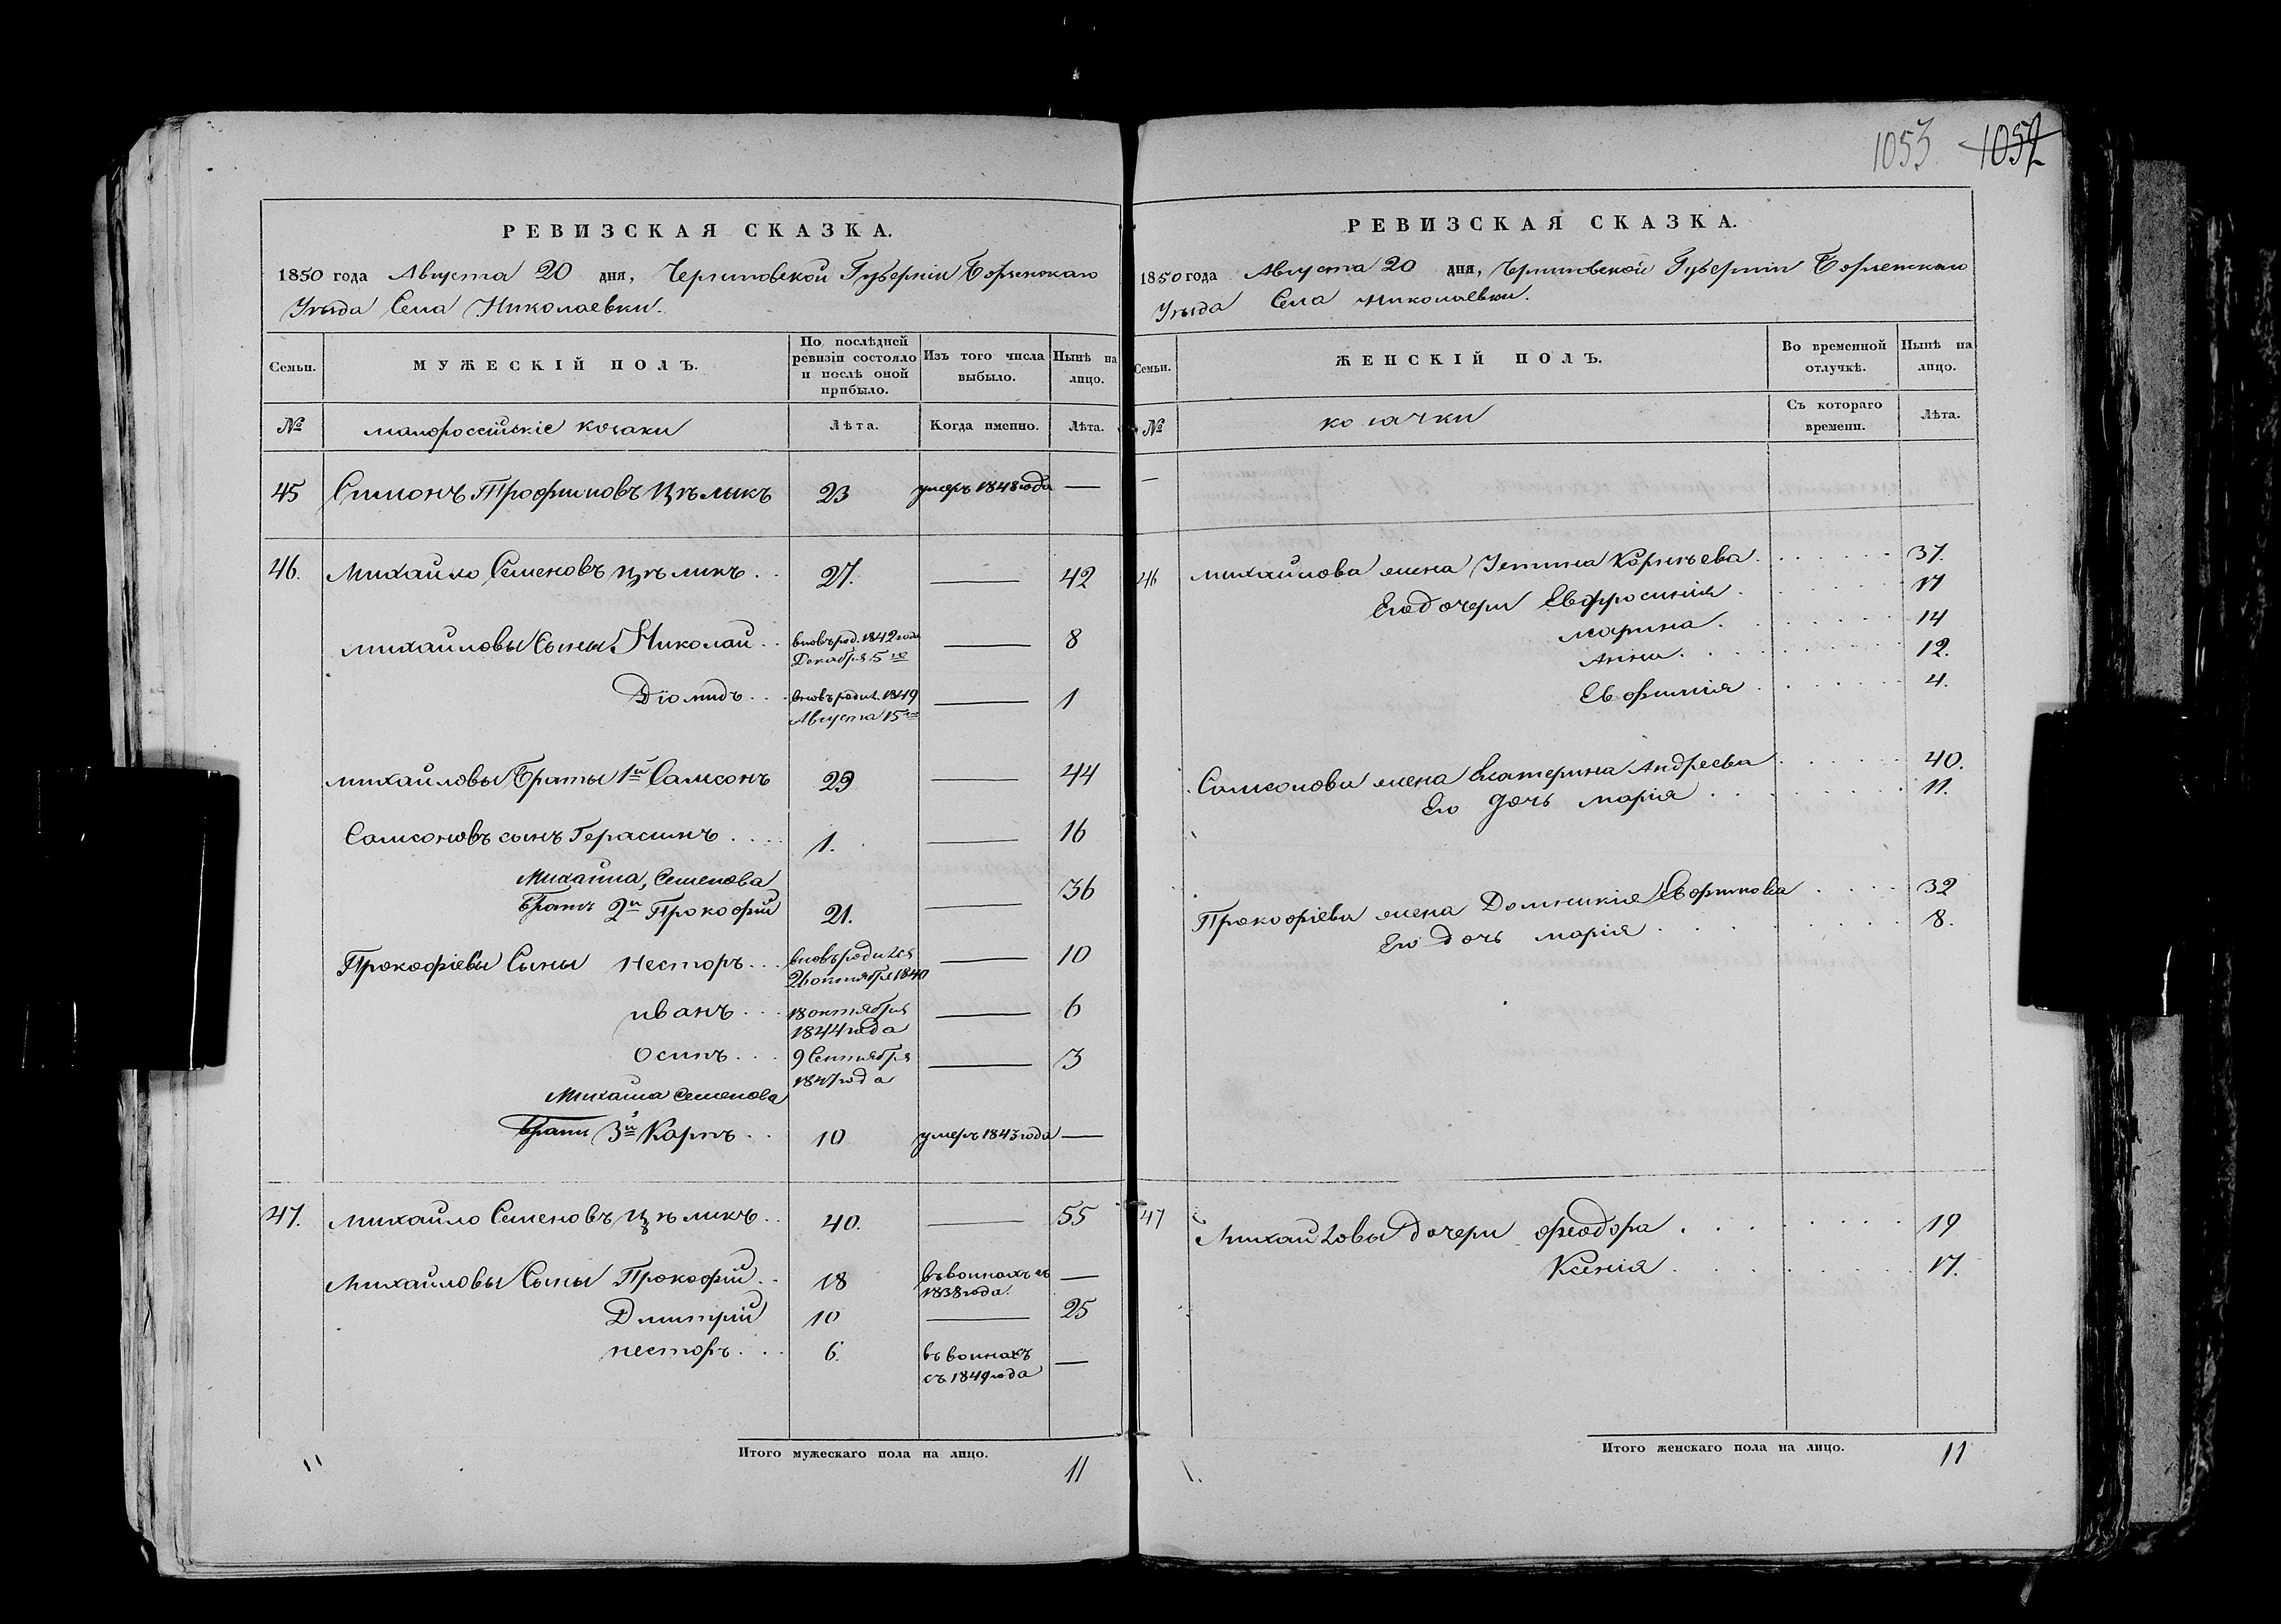 РЕВИЗСКАЯ СКАЗКА.
1850 года Августа 20 дня, Черниговской Губерніи Борзенскаго
Уѣзда Села Николаевки.
Семьи.
МУЖЕСКІЙ ПОЛЪ.
По послѣдней
ревизіи состояло
и послѣ оной
прибыло.
Изъ того числа
выбыло.
Нынѣ на
лицо.
№
малороссійскіе козаки
Лѣта.
Когда именно.
Лѣта.
45 Симонъ Трофимовъ Цѣликъ 23 умеръ 1848 года —
46. Михайло Семеновъ Цѣликъ . . 27. — 42
Михайловы Сыны Николай . . вновь род. 1842 года — 8
Декабря 5го
Діомидъ . . . вновь родил. 1849 — 1
Августа 15го
Михайловы Браты 1й Самсонъ 29 — 44
Самсоновъ сынъ Герасимъ . . . . 1. — 16
Михайла Семенова
Братъ 2й Прокофій 21. — 36
Прокофіевы Сыны Несторъ . . . вновь родился — 10
26 октября 1840
иванъ . . . 18 октября — 6
1844 года
Осипъ . . . 9 Сентября — 3
1847 года
Михайла Семенова
Братъ 3й Карпъ . . 10 умеръ 1843 года —
47. Михайло Семеновъ Цѣликъ . . 40. — 55
Михайловы Сыны Прокофій . . 18 въ воинахъ съ —
1838 года.
Дмитрій 10 — 25
несторъ . . . 6. въ воинахъ —
съ 1849 года
Итого мужескаго пола на лицо.
11
1053 1052
РЕВИЗСКАЯ СКАЗКА.
1850 года Августа 20 дня, Черниговской Губерніи Борзенскаго
Уѣзда Села Николаевки.
Семьи.
ЖЕНСКІЙ ПОЛЪ.
Во временной
отлучкѣ.
Нынѣ на
лицо.
№
козачки
Съ котораго
времени.
Лѣта.
—
46 Михайлова жена Устина Корнѣева . . . . . . 37.
Его дочери Евфросинія . . . . . 17
Марина . . . . . . . 14
Анна . . . . . . . . . 12.
Евфимія . . . . . . 4.
Самсонова жена Екатерина Андреева . . . . . 40.
Его дочь марія . . . . . . . . 11.
Прокофіева жена Домникія Евфимова . . . . 32
Его дочь марія . . . . . . . . . 8.
47 Михайловы Дочери феодора . . . . . . . . 19
Ксенія . . . . . . . . . 17.
Итого женскаго пола на лицо.
11